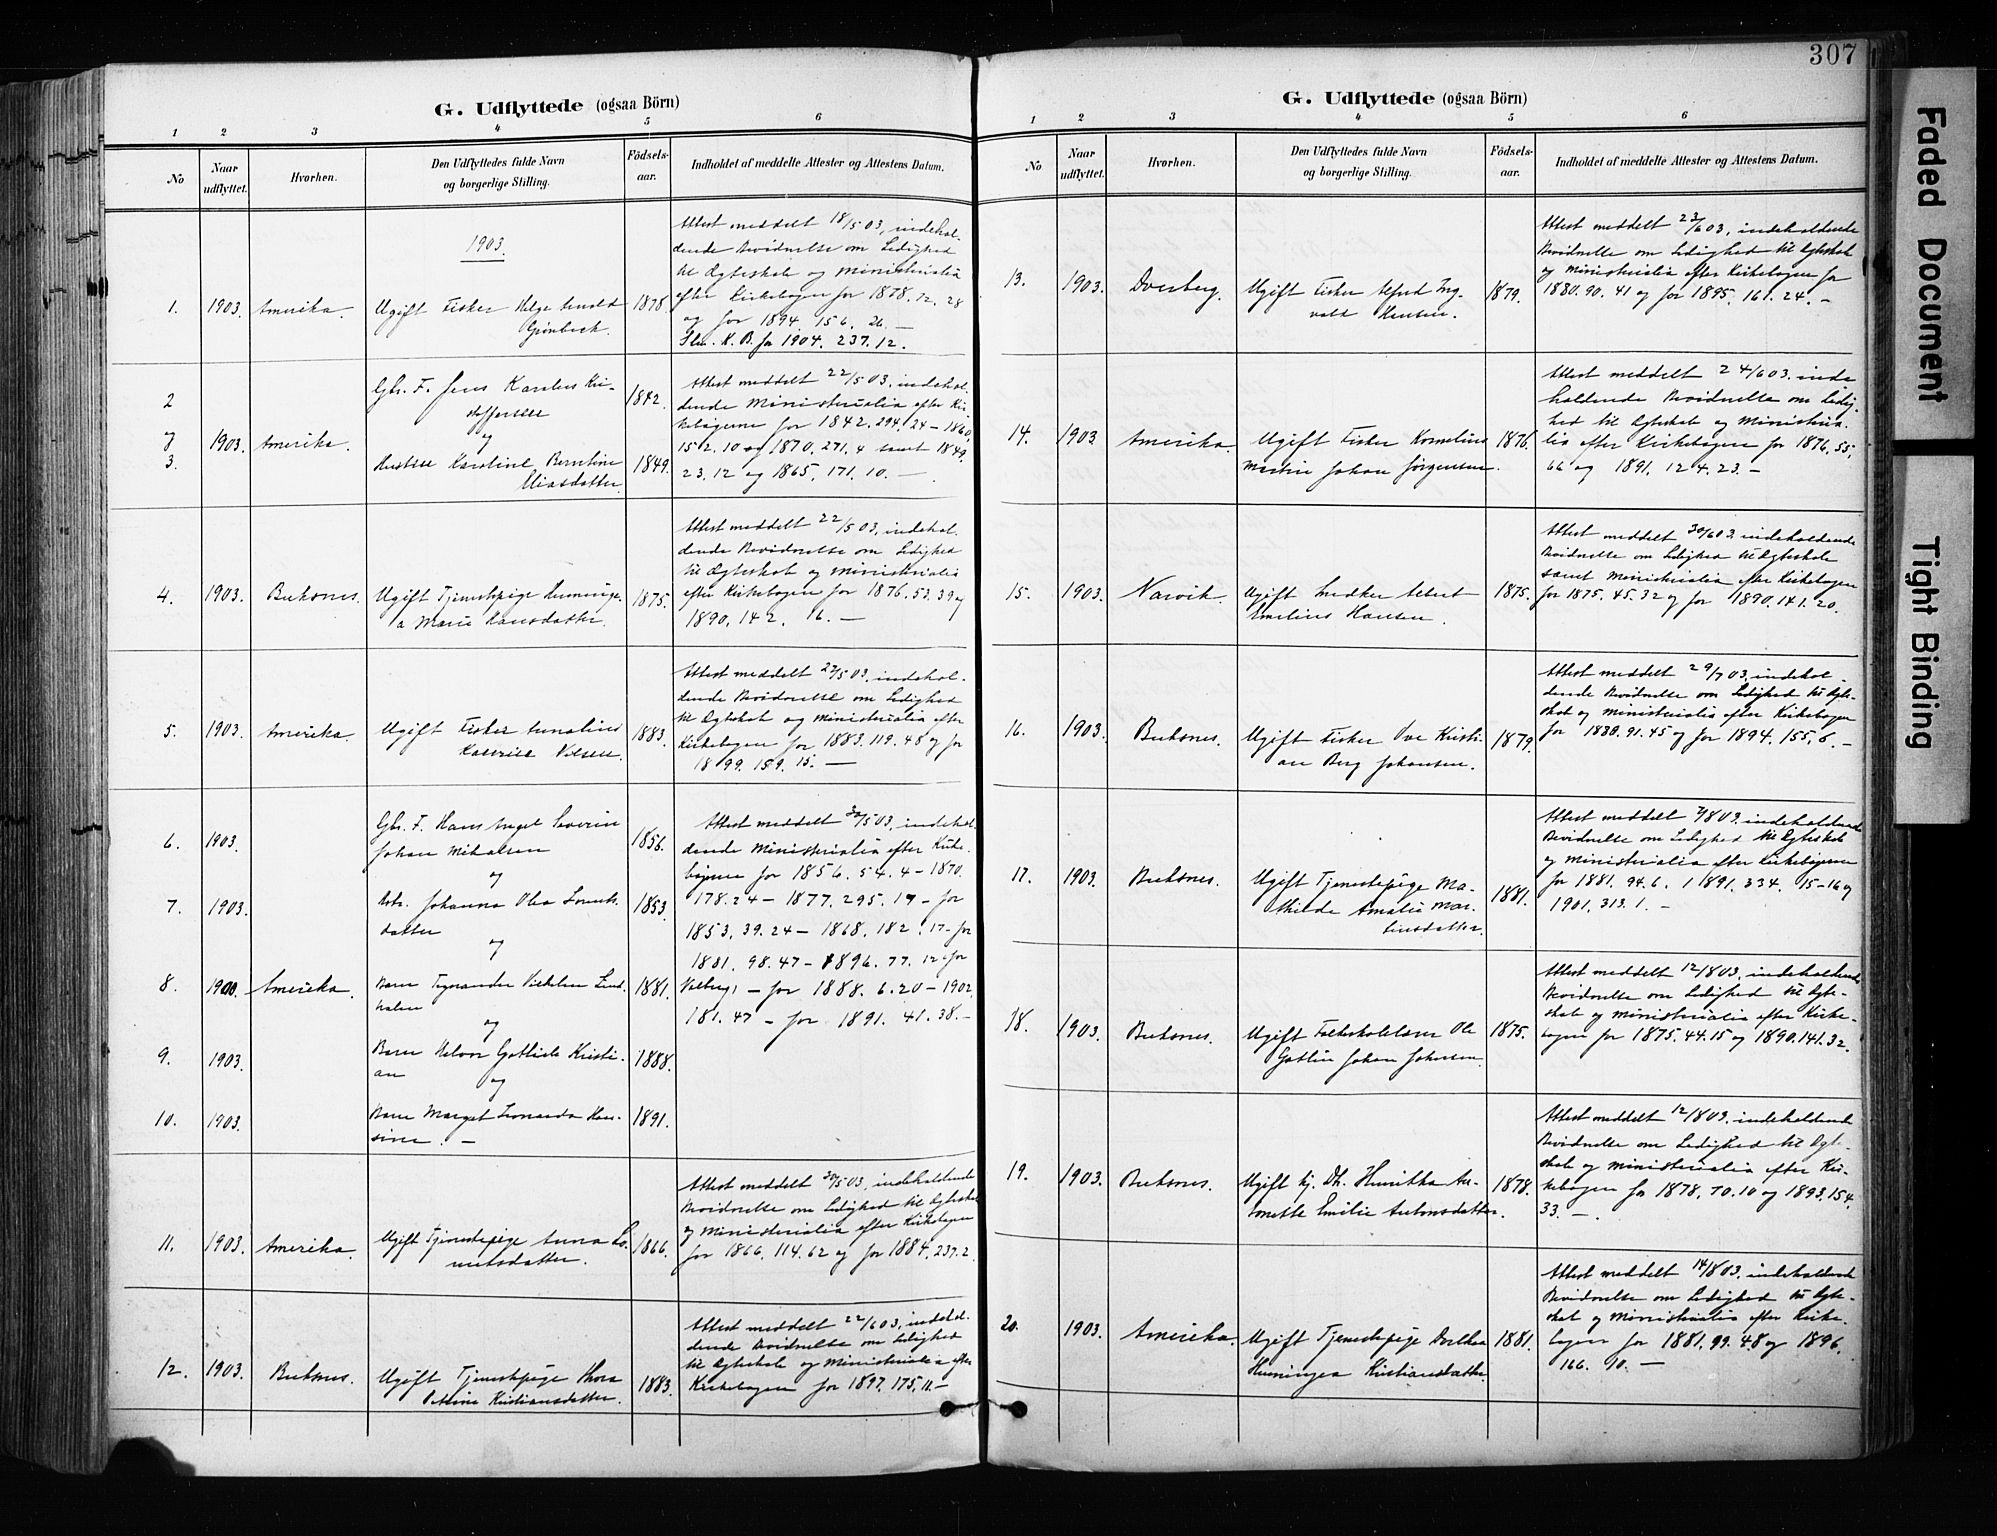 307
Faded Document
Tight Binding
G. Udflyttede (ogsaa Börn)
1 2 3 4 5 6
No
Naar udflyttet.
Hvorhen.
Den Udflyttedes fulde Navn og borgerlige Stilling.
Födselsaar.
Indholdet af meddelte Attester og Attestens Datum.
1903.
1. 1903. Amerika. Ugift Fisker Helge Arnold
Grønbech. 1878.
Attest meddelt 18/5 03, indehol-
dende Bevidnelse om Ledighed
til Ægteskab og Ministerialia
efter Kirkebogen for 1878. 72. 28
og for 1894. 156. 26. —
K. B. for 1904. 237. 12.
2 og 3. 1903. Amerika.
Gbr. F. Jens Kri-
stoffersen 1842.
og
Hustru Karoline Berntine
Eliasdatter. 1849.
Attest meddelt 22/5 03, indehol-
dende Ministerialia efter Kir-
kebøgerne for 1842. 294. 24 – 1860,
152. 10 og 1870, 271, 4 samt 1849.
23. 12 og 1865, 171. 10. —
4. 1903. Buksnes. Ugift Tjenestepige Henninge-
a Marie Hansdatter. 1875.
Attest meddelt 22/5 03, indehol-
dende Bevidnelse om Ledighed
til Ægteskab og Ministerialia
efter Kirkebogen for 1876. 53. 39 og
1890, 142. 16. —
5. 1903. Amerika. Ugift Fisker
Nilsen. 1883.
Attest meddelt 27/5 03, indehol-
dende Bevidnelse om Ledighed
til Ægteskab og Ministerialia efter
Kirkebogen for 1883. 119. 48 og for
1899. 159. 15. —
6. 1903. Gbr. F. Hans Angel Severin
Johan Mikalsen 1856.
og
7. 1903. Johanna Olea Lorents-
datter 1853.
og
8. 1900. Amerika. Barn Vilhelm Lind-
1881.
og
9. 1903. Barn Halvor Gotlieb Kristi-
an 1888.
og
10. 1903. Barn Marget Leonarda Han-
sine. — 1891.
Attest meddelt 30/5 03, indehol-
dende Ministerialia efter Kirke-
bøgerne for 1856. 54. 4 – 1870.
178. 24 – 1877. 295. 19 – for
1853, 39. 24 – 1868, 182. 17 – for
1881. 98. 47 – 1896. 77. 12 for
– for 1888. 6. 20 – 1902.
181. 47 – for 1891. 41. 38. –
11. 1903. Amerika. Ugift Tjenestepige Anna Lo-
rentsdatter. 1866.
Attest meddelt 30/5 03, indeholdende
Bevidnelse om Ledighed til Ægteskab
og Ministerialia efter Kirkebogen
for 1866. 114. 62 og for 1884. 237. 2.
12. 1903. Buksnes. Ugift Tjenestepige Thora
Petrine Kristiansdatter. 1883.
Attest meddelt 22/6 03, indehol-
dende Bevidnelse om Ledighed
til Ægteskab og Ministerialia efter
Kirkebogen for 1897. 175, 11. –
G. Udflyttede (ogsaa Börn)
1 2 3 4 5 6
No
Naar udflyttet.
Hvorhen.
Den Udflyttedes fulde Navn og borgerlige Stilling.
Födselsaar.
Indholdet af meddelte Attester og Attestens Datum.
13. 1903. Dverberg. Ugift Fisker Alfred Ing-
vald Hansen. 1879.
Attest meddelt 23/6 03, indeholdende
Bevidnelse om Ledighed til Ægteskab
og Ministerialia efter Kirkebogen for
1880. 90. 41 og for 1895. 161. 24. –
14. 1903 Amerika. Ugift Fisker Kornelius
Martin Johan Jørgensen. 1876.
Attest meddelt 24/6 03. inde
holdende Bevidnelse om Ledig-
hed til Ægteskab og Ministeria-
lia efter Kirkebogen for 1876, 55,
66 og 1891. 124. 23. –
15. 1903. Narvik. Ugift Snedker Albert
Emelius Hansen. 1875.
Attest meddelt 30/6 03, indeholdende
Bevidnelse om Ledighed til Ægteskab
samt Ministerialia efter Kirkebogen
for 1875. 45. 32 og for 1890. 141. 20.
16. 1903. Buksnes. Ugift Fisker Ove Kristi-
an Berg Johansen. 1879.
Attest meddelt 29/7 03, indehol-
dende Bevidnelse om Ledighed til Ægte-
skab og Ministerialia efter Kirkebogen
for 1880. 91. 45 og for 1894. 155, 6. –
17. 1903. Buksnes. Ugift Tjenestepige Ma-
thilde Amalie Mar-
tinsdatter. 1881.
Attest meddelt 7/8 03, indeholdende
Bevidnelse om Ledighed til Ægteskab
og Ministerialia efter Kirkebøgerne
for 1881. 94. 6. 1891. 334. 15–16 og
1901. 313. 1. –
18. 1903. Buksnes. Ugift Folkeskolelærer Ole
Gotlin Johan Johnsen. 1875.
Attest meddelt 12/8 03, indeholdende
Bevidnelse om Ledighed til Ægte-
skab og Ministerialia efter Kirke-
bogen for 1875. 44. 15 og 1890. 141. 32.
19. 1903. Buksnes. Ugift Henrikka An-
tonette Emilie Antonsdatter. 1878.
Attest meddelt 12/8 03, indeholdende
Bevidnelse om Ledighed til Ægte-
skab og Ministerialia efter Kir-
kebogen for 1878, 70. 10 og 1893. 154.
33. –
20. 1903. Amerika. Ugift Tjenestepige Dorthea
Henningea Kristiansdatter. 1881.
Attest meddelt 14/8 03, indeholdende
Bevidnelse om Ledighed til Ægte-
skab og Ministerialia efter Kirke-
bogen for 1881. 99. 48 og 1896.
166. 10. –